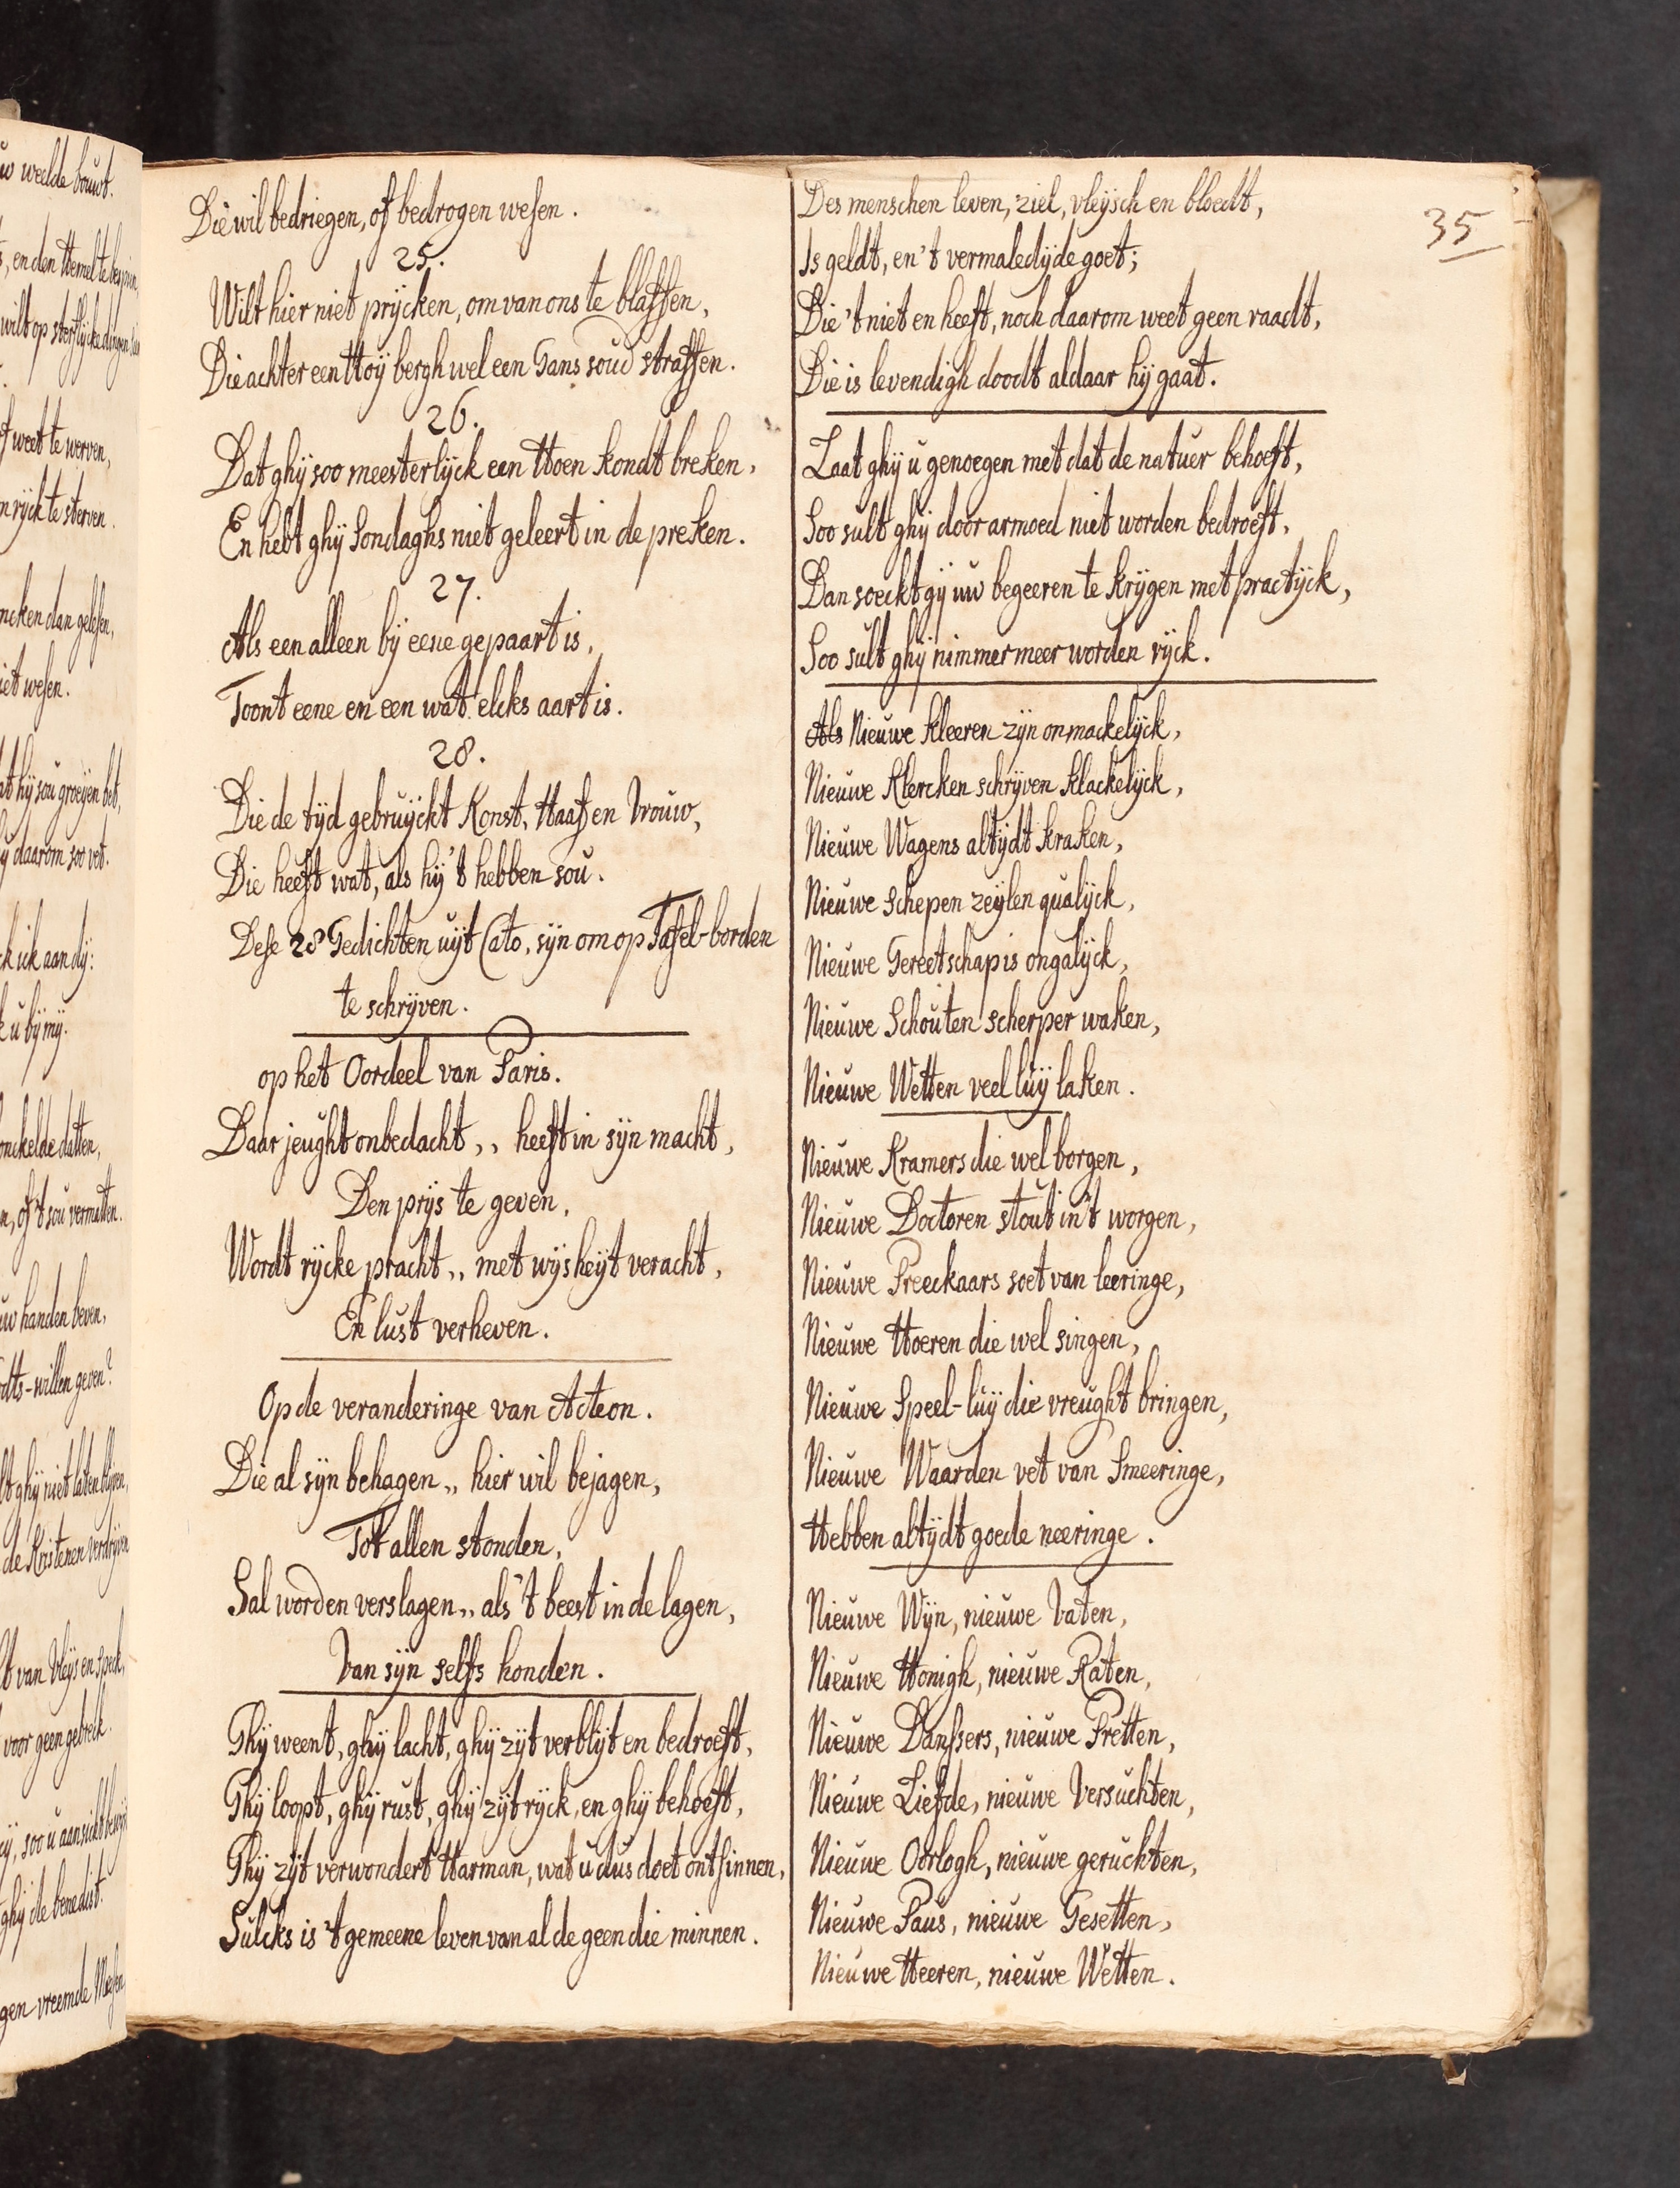 Die wil bedriegen, of bedrogen wesen.
25.
Wilt hier niet prÿcken, om van ons te blaffen,
Die achter een Hoÿ bergh wel een Gans soud straffen.
26.
Dat ghÿ soo meesterlÿck een Hoen kondt breken,
En hebt ghÿ Sondaghs niet geleert in de preken.
27.
Als een alleen bÿ eene gepaart is,
Toont eene en een wat elcks aart is.
28.
Die de tÿd gebruÿckt Konst, Haaf en Vrouw,
Die heeft wat, als hÿ 't hebben sou.
Dese 28 Gedichten uÿt Cato, sÿn om op Tafel-borden
te schrÿven.
op het Oordeel van Paris.
Daar jeught onbedacht,, heeft in sÿn macht,
Den prÿs te geven,
Wordt rÿcke pracht,, met wÿsheÿt veracht,
En lust verheven.
Op de veranderinge van Acteon.
Die al sÿn behagen,, hier wil bejagen,
Tot allen stonden,
Sal worden verslagen,, als 't beest in de lagen,
Van sÿn selfs honden.
Ghÿ weent, ghÿ lacht, ghÿ zÿt verblÿt en bedroeft,
Ghÿ loopt, ghÿ rust, ghÿ zÿt rÿck, en ghÿ behoeft,
Ghÿ zÿt verwondert Harman, wat u dus doet ontsinnen,
Sulcks is 't gemeene leven van al de geen die minnen.
35
Des menschen leven, ziel, vleÿsch en bloedt,
Is geldt, en 't vermaledÿde goet;
Die 't niet en heeft, noch daarom weet geen raadt,
Die is levendigh doodt aldaar hÿ gaat.
Laat ghÿ u genoegen met dat de natuer behoeft,
Soo sult ghÿ door armoed niet worden bedroeft,
Dan soeckt gÿ uw begeeren te krÿgen met practÿck,
Soo sult ghÿ nimmermeer worden rÿck.
Als Nieuwe kleeren zÿn onmackelÿck,
Nieuwe Klercken schrÿven klackelÿck,
Nieuwe Wagens altÿdt kraken,
Nieuwe Schepen zeÿlen qualÿck,
Nieuwe Gereetschap is ongalÿck,
Nieuwe Schouten scherper waken,
Nieuwe Wetten veel luÿ laken.
Nieuwe Kramers die wel borgen,
Nieuwe Doctoren stout in 't worgen,
Nieuwe Preeckaars soet van leeringe,
Nieuwe Hoeren die wel singen,
Nieuwe Speel-luÿ die vreught bringen,
Nieuwe Waarden vet van Smeeringe,
Hebben altÿdt goede neeringe.
Nieuwe Wÿn, nieuwe Vaten,
Nieuwe Honigh, nieuwe Raten,
Nieuwe Danssers, nieuwe Pretten,
Nieuwe Liefde, nieuwe Versuchten,
Nieuwe Oorlogh, nieuwe geruchten,
Nieuwe Paus, nieuwe Gesetten,
Nieuwe Heeren, nieuwe Wetten.